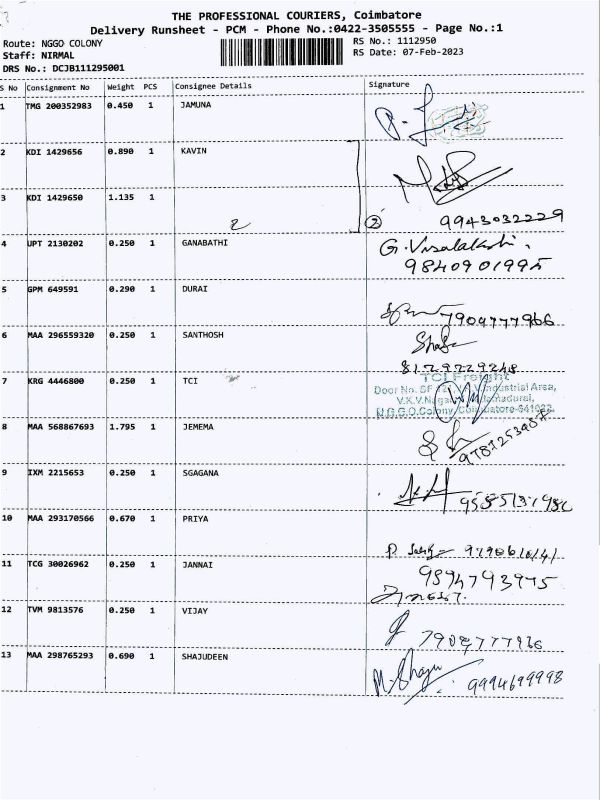 THE PROFESSIONAL COURIERS, Coimbatore
Delivery Runsheet - PCM - Phone No.:0422-3505555 - Page No.:1
Route: NGGO COLONY
Staff: NIRMAL
DRS No.: DCJB111295001
RS No.: 1112950
RS Date: 07-Feb-2023
S No Consignment No Weight PCS Consignee Details Signature
1 TMG 200352983 0.450 1 JAMUNA
2 KDI 1429656 0.890 1 KAVIN
3 KDI 1429650 1.135 1
2 2 9943032229
4 UPT 2130202 0.250 1 GANABATHI G. Visalakshi.
9840901995
5 GPM 649591 0.290 1 DURAI
7904777966
6 MAA 296559320 0.250 1 SANTHOSH
8129229248
7 KRG 4446800 0.250 1 TCI TCI Freight
Door No. SF Industrial Area,
V.K.V.Nagar
N.G.G.O.Colony, Coimbatore-641022
8 MAA 568867693 1.795 1 JEMEMA
9787253487
9 IXM 2215653 0.250 1 SGAGANA
10 MAA 293170566 0.670 1 PRIYA
11 TCG 30026962 0.250 1 JANNAI 9894793975
12 TVM 9813576 0.250 1 VIJAY
13 MAA 298765293 0.690 1 SHAJUDEEN M. Shaju
9994699998